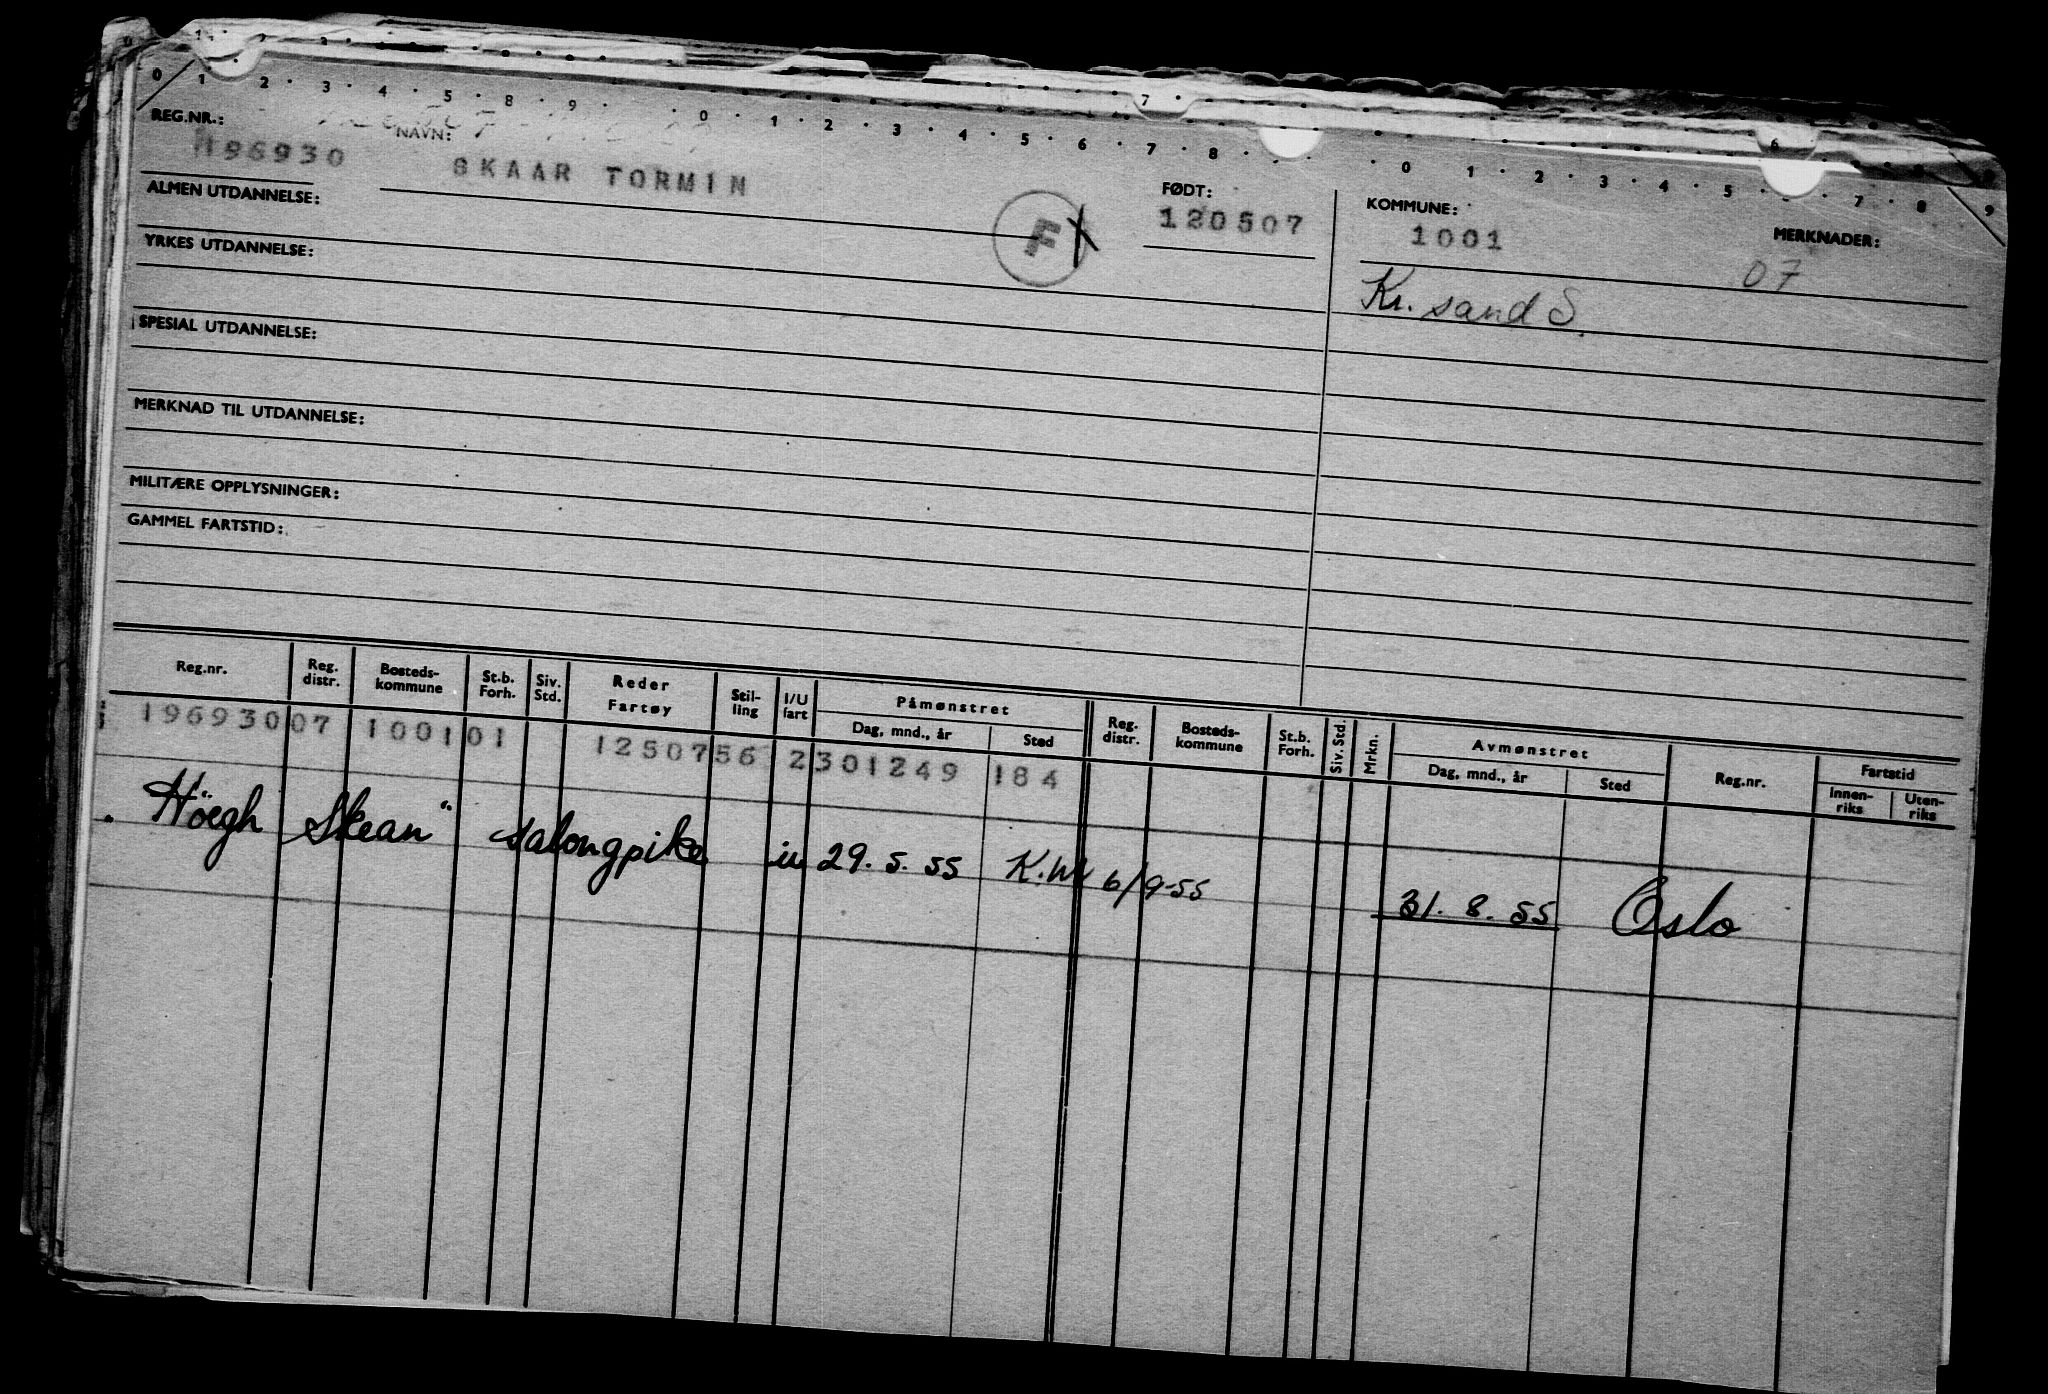 0 1 2 3 4 5 8 9 0 1 2 3 4 5 6 7 8 0 1 2 3 4 5 7 8 9
REG.NR.: NAVN: FØDT: KOMMUNE: MERKNADER:
196930 SKAAR TORMIN 120507 1001
F X
07
Kr. sand S.
ALMEN UTDANNELSE:
YRKES UTDANNELSE:
SPESIAL UTDANNELSE:
MERKNAD TIL UTDANNELSE:
MILITÆRE OPPLYSNINGER:
GAMMEL FARTSTID:
Reg.nr. Reg. distr. Bosteds-kommune St.b. Forh. Siv. Std. Reder Fartøy Stil-ling I/U fart Påmønstret Dag, mnd., år Sted Reg. distr. Bosteds-kommune St.b. Forh. Siv. Std. Mrkn. Avmønstret Dag, mnd., år Sted Reg.nr. Fartstid Innen-riks Uten-riks
196930 07 1001 01 1250756 2 301249 184
"Höegh Skean" salongpike u 29.5.55 6/9-55 31.8.55 Oslo